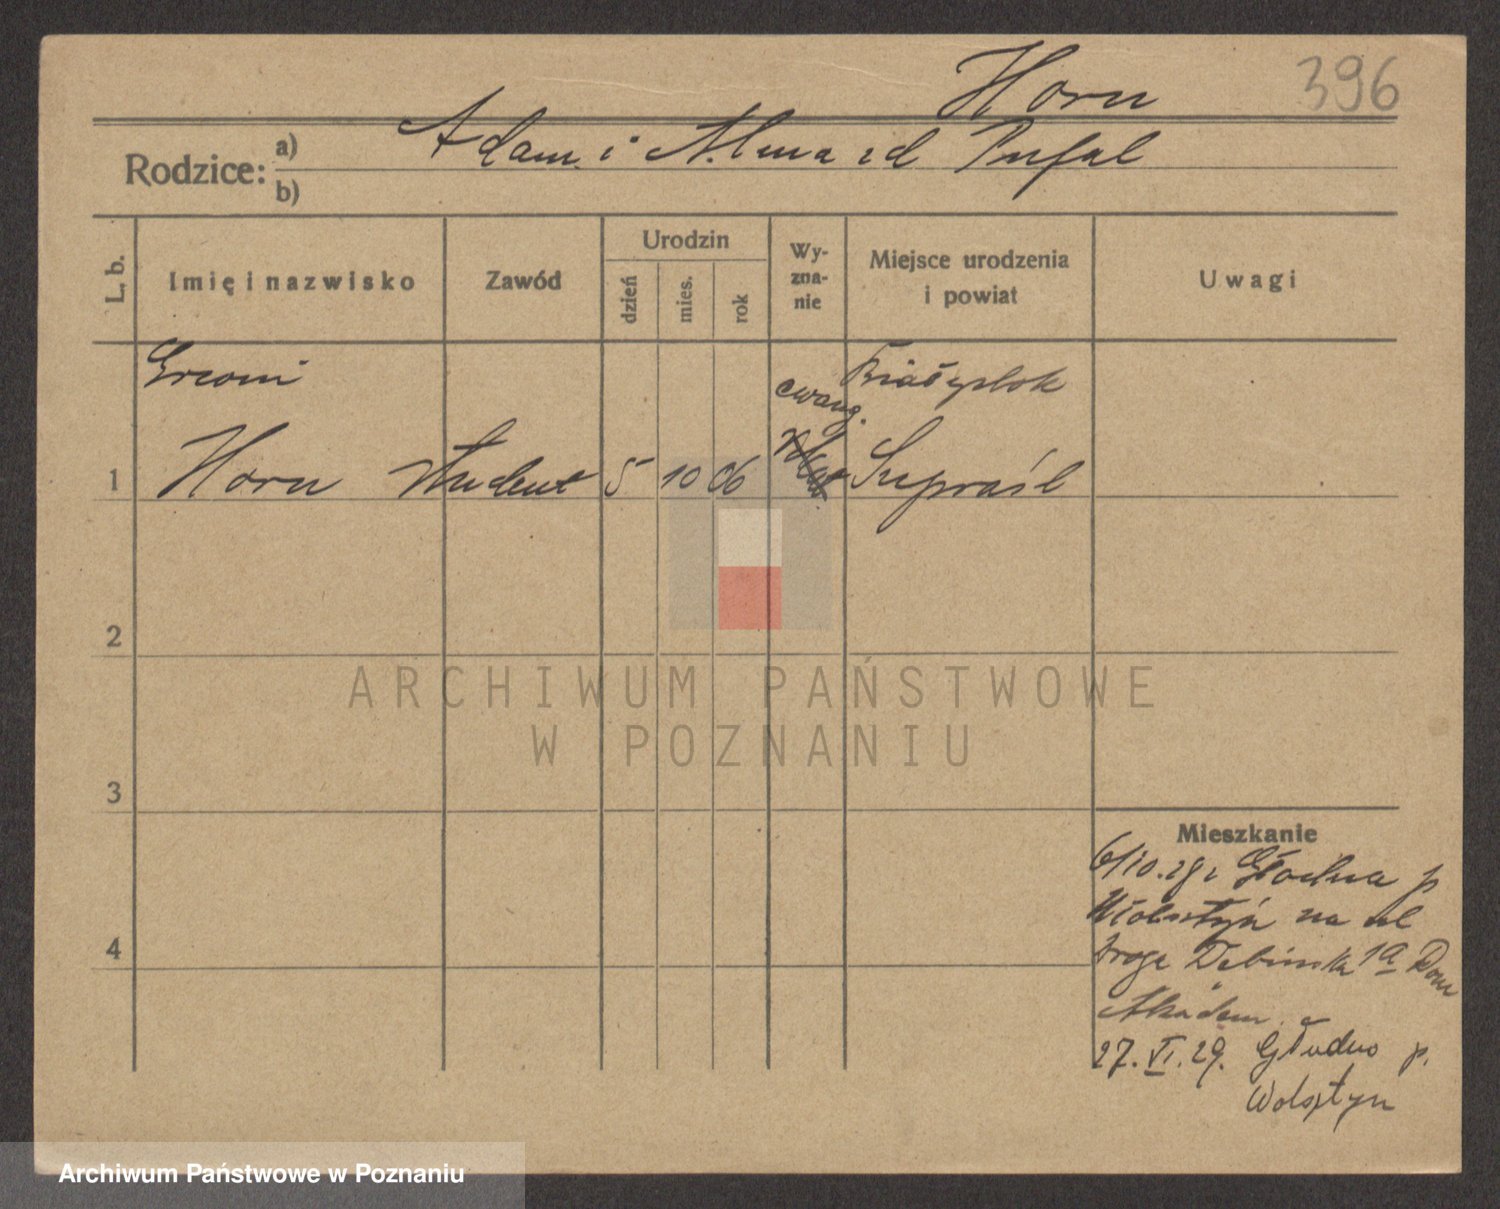 Horn 396
Adam i Alma zd Pufal
Rodzice: a)
b)
L. b.
Imię i nazwisko
Zawód
Urodzin
dzień
mies.
rok
Wy-
zna-
nie
Miejsce urodzenia
i powiat
Uwagi
ewang.
Białystok
1 Horn student 5 10 06 Supraśl
2
ARCHIWUM PAŃSTWOWE
W POZNANIU
3
Mieszkanie
6/10.28 z p
Wolsztyn na ul
Droga Dębińska 1a Dom
Akadem.
4
27.VI.29. p.
Wolsztyn
Archiwum Państwowe w Poznaniu